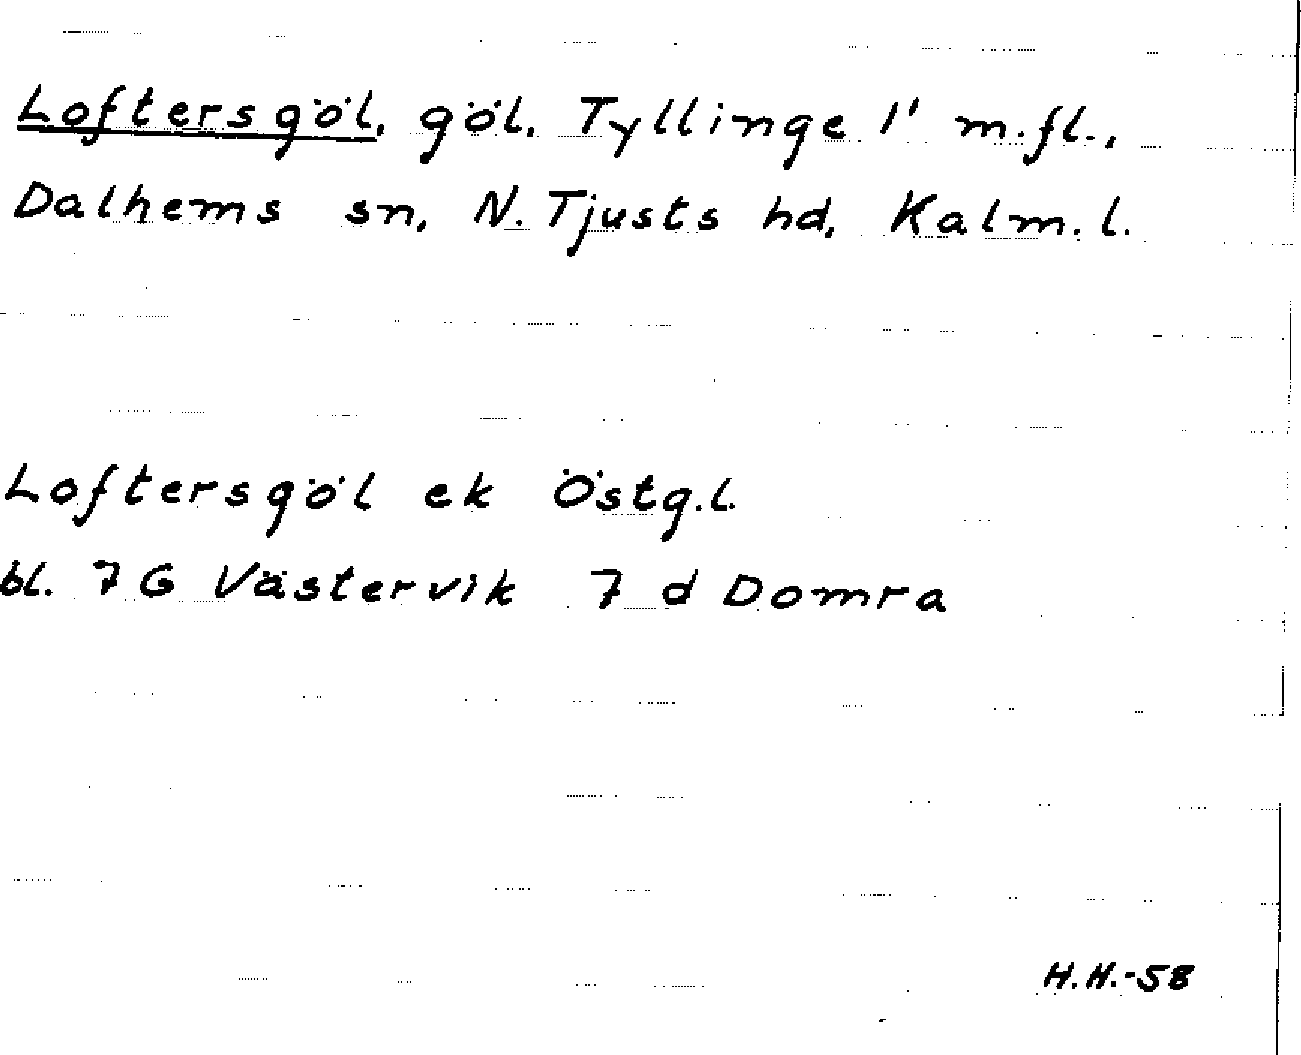 Loftersgöl, göl, Tyllinge 1' m.fl.,
Dalhems sn, N. Tjusts hd, Kalm. l.
Loftersgöl ek Östg.l.
bl. 7 G Västervik 7 d Domra
H.H.-58